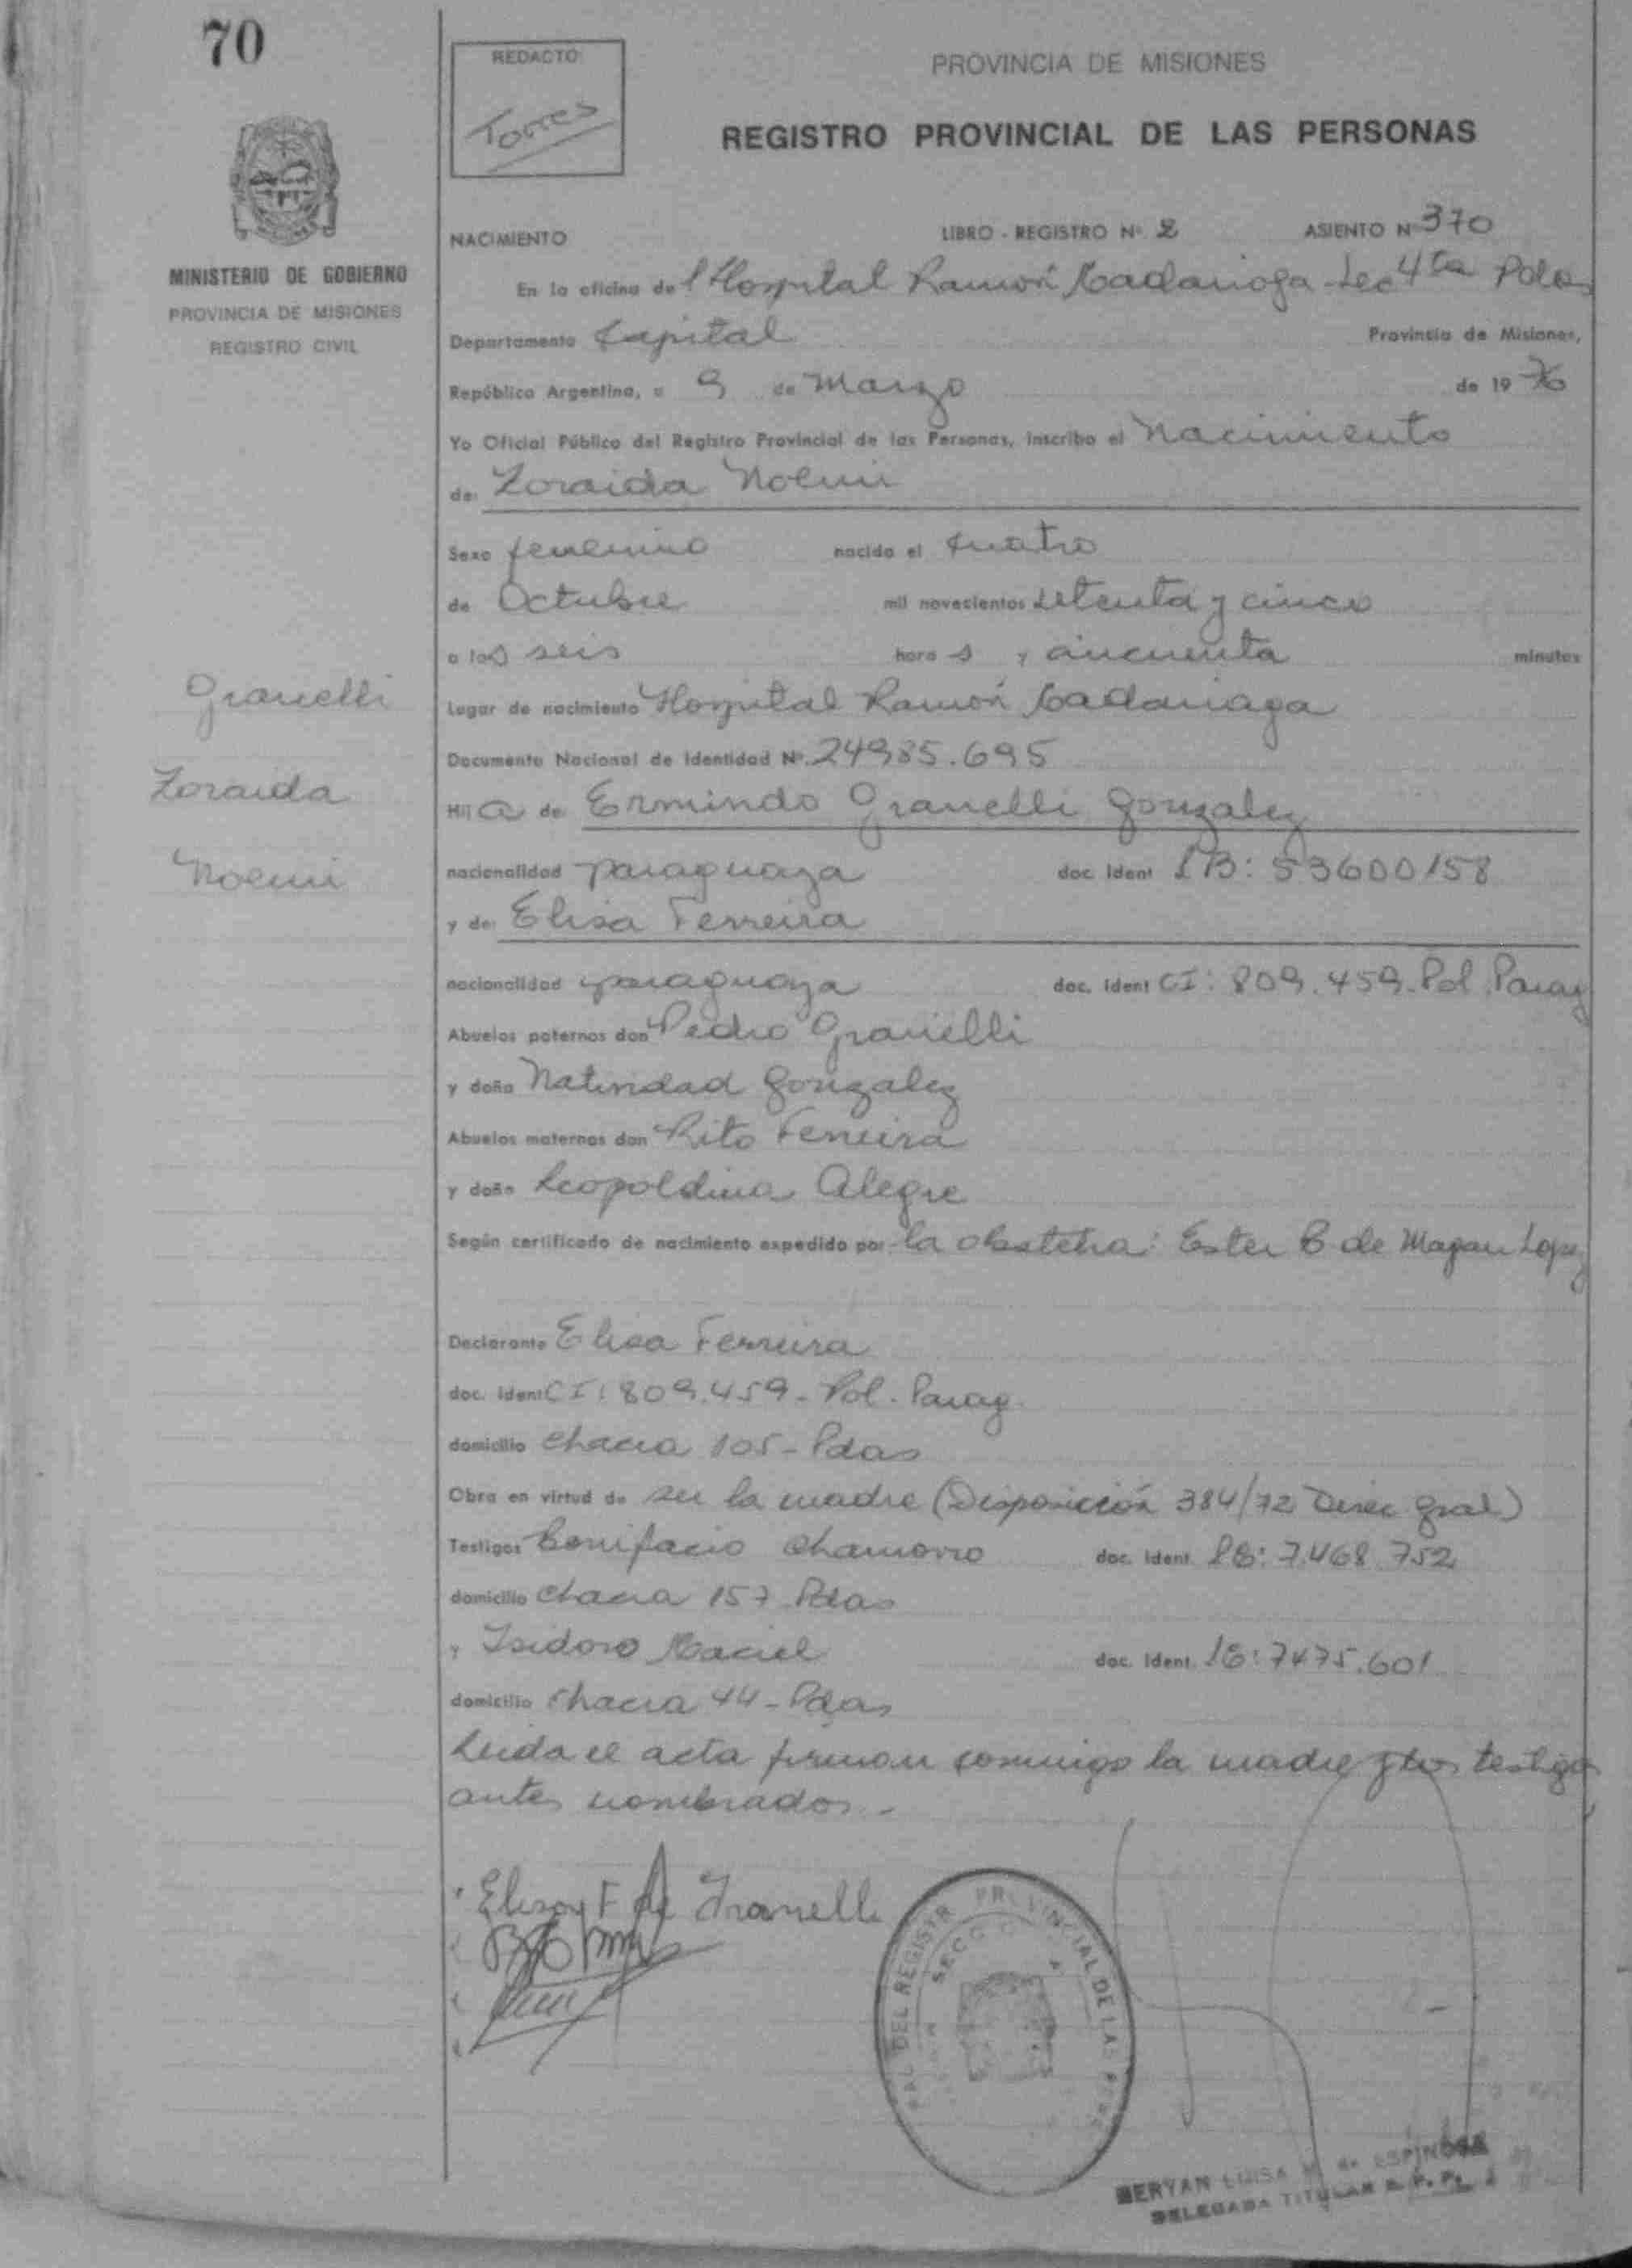 70
REDACTO:
Torres
PROVINCIA DE MISIONES
REGISTRO PROVINCIAL DE LAS PERSONAS
MINISTERIO DE GOBIERNO
PROVINCIA DE MISIONES
REGISTRO CIVIL
NACIMIENTO LIBRO - REGISTRO Nº 2 ASIENTO Nº 370
En la oficina del Hospital Ramón Madariaga Sec 4ta Pdas
Departamento Capital Provincia de Misiones,
República Argentina, a 9 de Marzo de 1976
Yo Oficial Público del Registro Provincial de las Personas, inscribo el Nacimiento
de: Zoraida Noemi
Sexo femenino nacido el cuatro
de Octubre mil novecientos setenta y cinco
a las seis hora s y cincuenta minutos
Lugar de nacimiento Hospital Ramón Madariaga
Documento Nacional de Identidad Nº. 24985.695
Hij a de: Ermindo Granelli Gonzalez
nacionalidad paraguaya doc. Ident LB: 53600158
y de: Elisa Ferreira
nacionalidad paraguaya doc. Ident CI: 809.459. Pol. Parag
Abuelos paternos don Pedro Granelli
y doña Natividad Gonzalez
Abuelos maternos don Rito Ferreira
y doña Leopoldina Alegre
Según certificado de nacimiento expedido por la obstetra: Ester B de Magan Lopez
Declarante Elisa Ferreira
doc. Ident CI: 809.459 - Pol. Parag.
domicilio chacra 105 - Pdas
Obra en virtud de ser la madre (Disposición 384/72 Direc Gral)
Testigos Bonifacio Chamorro doc. Ident. LE: 7.468.752
domicilio chacra 157 Pdas
y Isidoro Maciel doc. Ident. LE: 7475.601
domicilio chacra 44 - Pdas
Leida el acta firman conmigo la madre y los testigos
antes nombrados.-
Granelli
Zoraida
Noemi
Elisa F de Granelli
DEL REGISTR PROVINCIAL DE LAS
SECC
LUISA M. de ESPINOSA
DELEGADA TITULAR R. P. P.